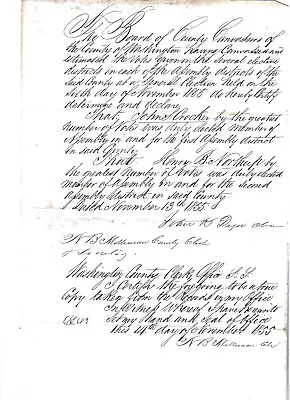 The Board of County Canvassers of
the County of Washington having Canvassed and
estimated the Votes given in the several election
districts in each of the Assembly districts of the
said County at a General Election held on the
sixth day of November 1855 do hereby Certify
determine and declare
That, John Crocker by the greatest
number of Votes was duly elected member of
Assembly in and for the first Assembly district
in said County
That Henry B. Northup by
the greatest number of votes was duly elected
member of Assembly in and for the second
Assembly district in said County
Dated November 13th 1855
John
N B Milliman County Clerk
Secretary
Washington County Clerks Office S.S.
I Certify the foregoing to be a true
Copy taken from the Records in my Office
In Witness Whereof I have hereunto
set my Hand and Seal of Office
this 14th day of November 1855
N B Milliman Clk